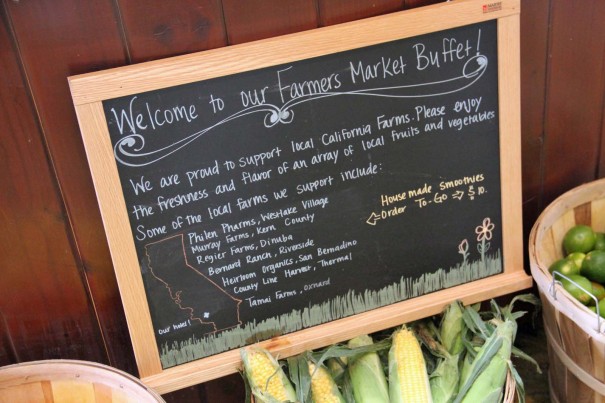 Welcome to our Farmers Market Buffet!
We are proud to support local California Farms. Please enjoy
the freshness and flavor of an array of local fruits and vegetables
Some of the local farms we support include:
Philen Pharms, Westlake Village
Murray Farms, Kern County
Regier Farms, Dinuba
Bernard Ranch, Riverside
Heirloom Organics, San Bernadino
County Line Harvest, Thermal
Tamai Farms, Oxnard
House made Smoothies
Order To-Go
10.
Our hotel!